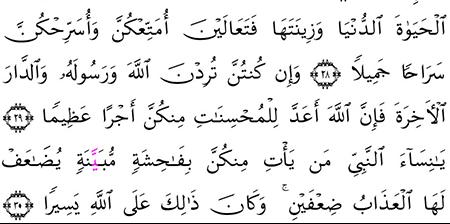 ٱلْحَيَوٰةَ ٱلدُّنْيَا وَزِينَتَهَا فَتَعَالَيْنَ أُمَتِّعْكُنَّ وَأُسَرِّحْكُنَّ
سَرَاحًا جَمِيلًا ٢٨ وَإِن كُنتُنَّ تُرِدْنَ ٱللَّهَ وَرَسُولَهُۥ وَٱلدَّارَ
ٱلْأَخِرَةَ فَإِنَّ ٱللَّهَ أَعَدَّ لِلْمُحْسِنَٰتِ مِنكُنَّ أَجْرًا عَظِيمًا ٢٩
يَٰنِسَآءَ ٱلنَّبِيِّ مَن يَأْتِ مِنكُنَّ بِفَٰحِشَةٍ مُّبَيَّنَةٍ يُضَٰعَفْ
لَهَا ٱلْعَذَابُ ضِعْفَيْنِ ۚ وَكَانَ ذَٰلِكَ عَلَى ٱللَّهِ يَسِيرًا ٣٠